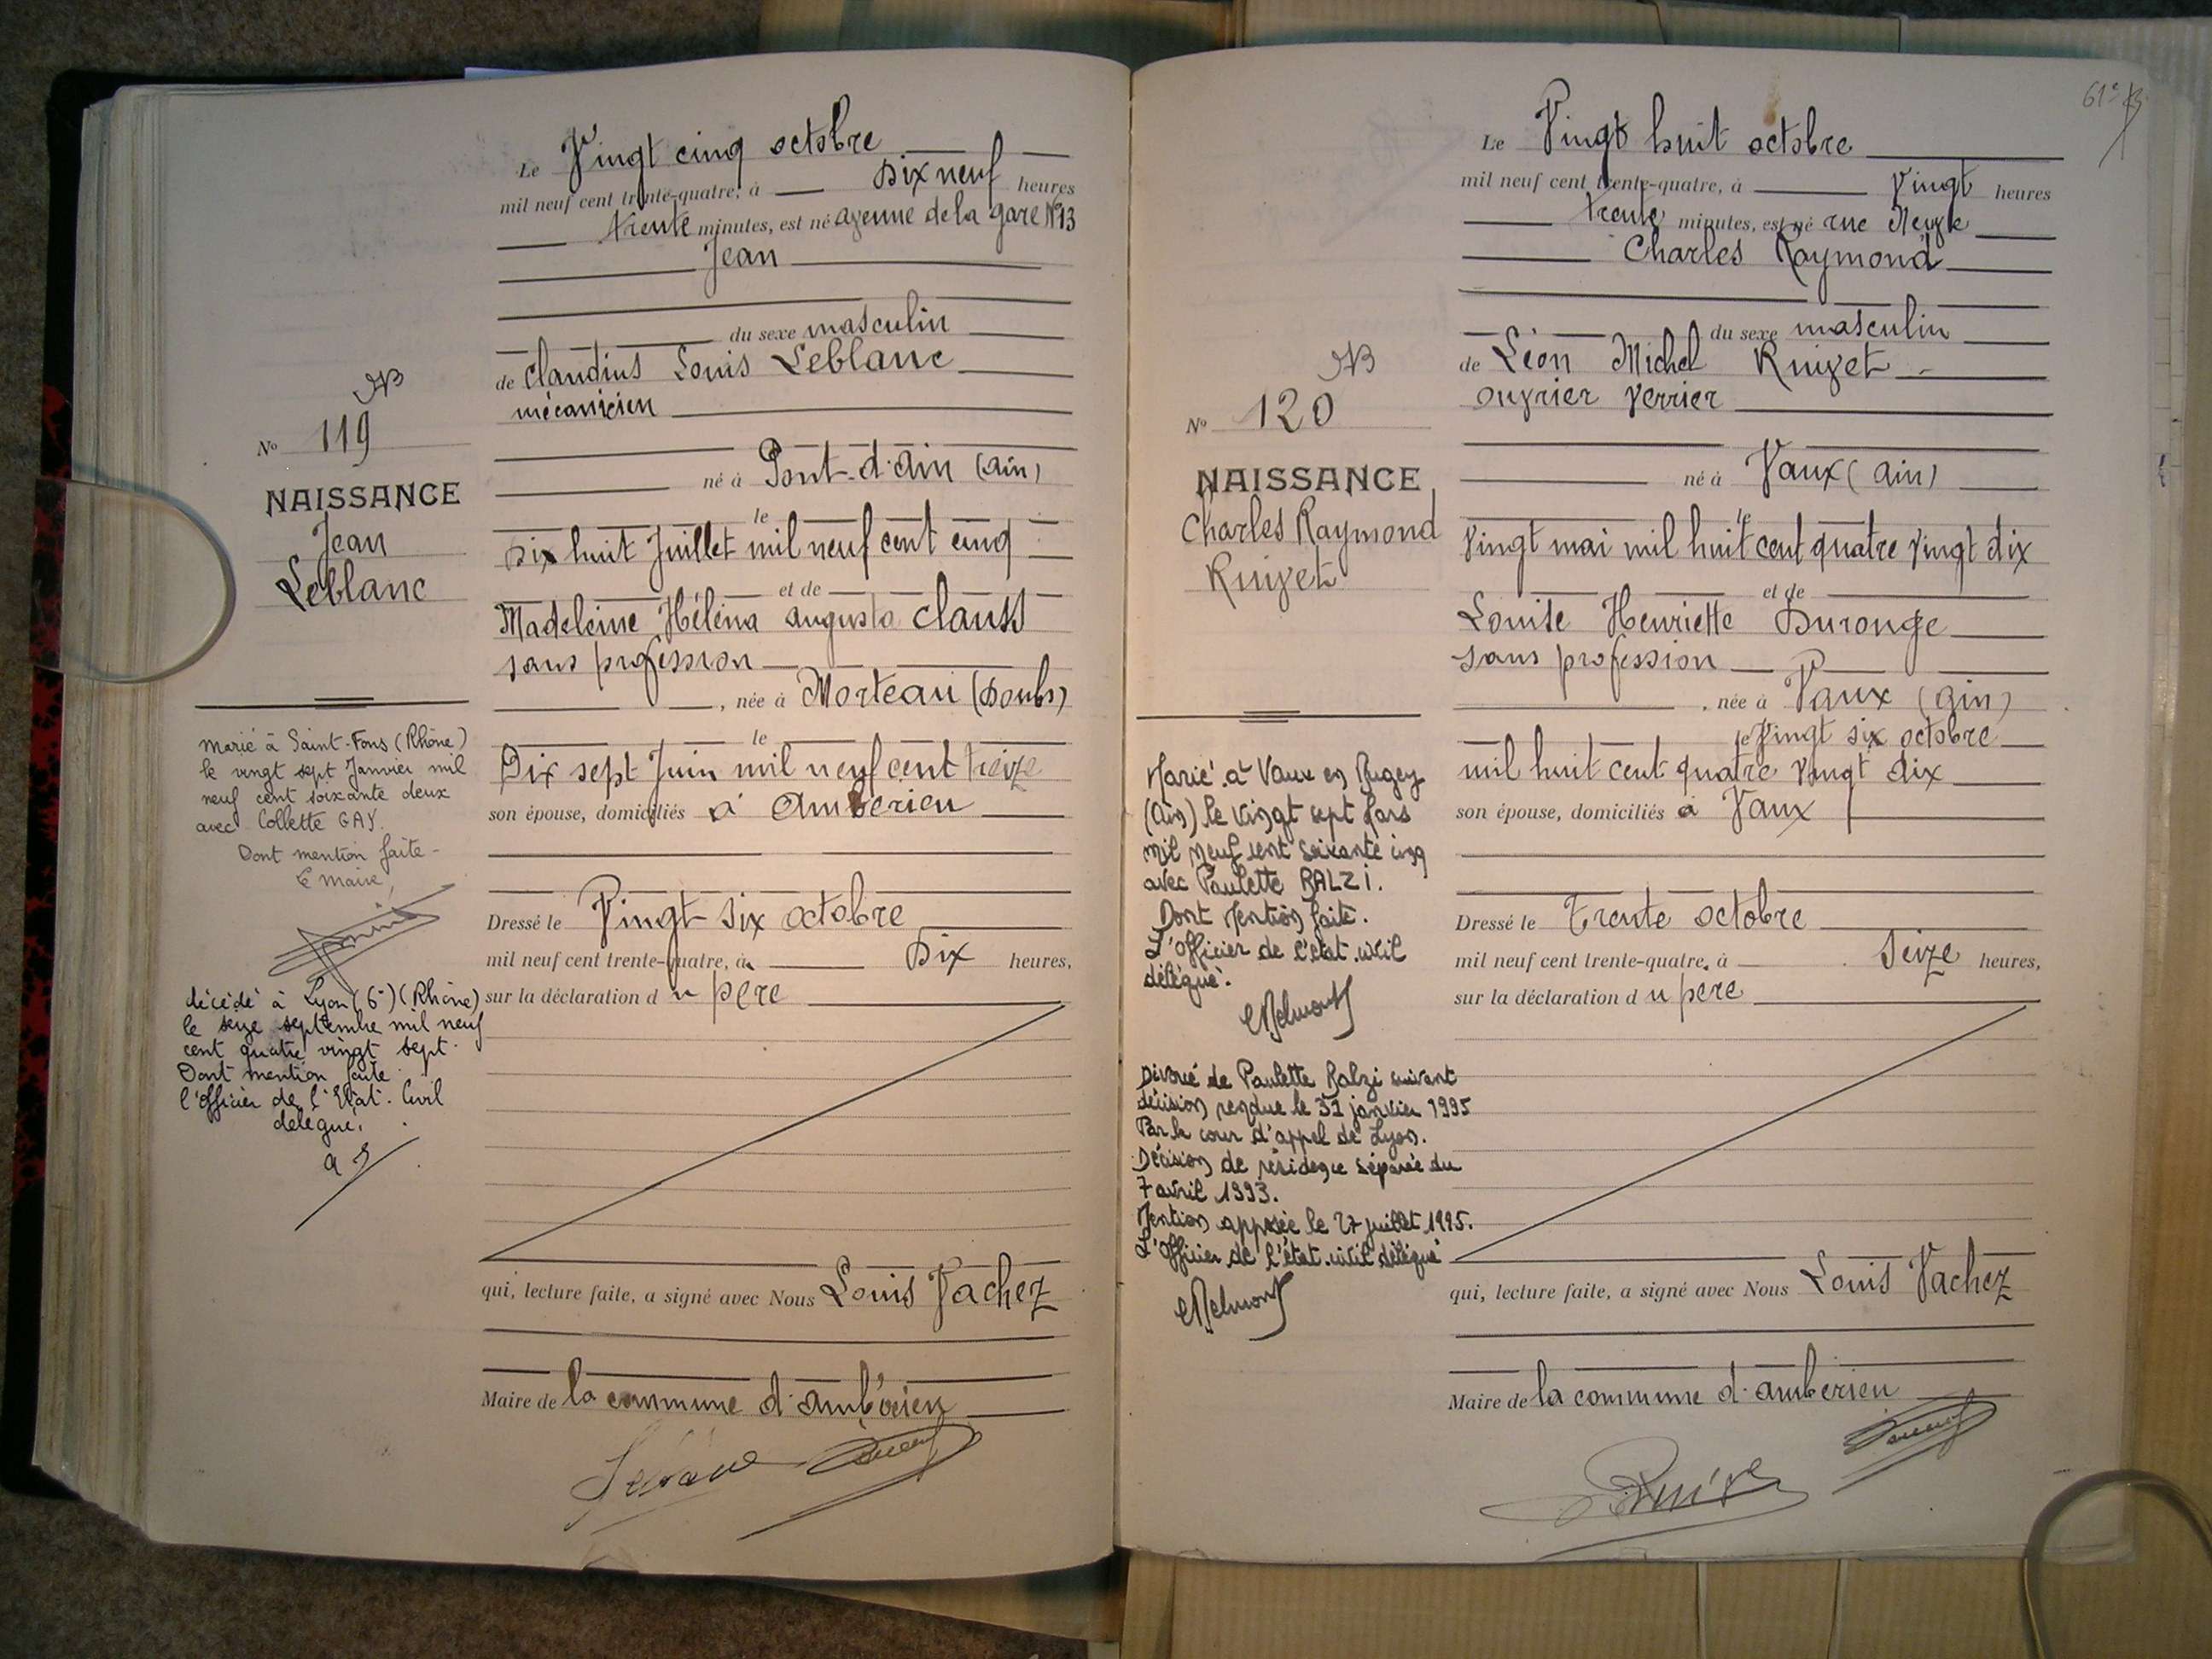 Le Vingt cinq octobre
mil neuf cent trente-quatre, à Dix neuf heures
trente minutes, est né avenue de la gare N°13
Jean
du sexe masculin
de Claudius Louis Leblanc
mécanicien
né à Pont-d'Ain (Ain)
le
Dix huit Juillet mil neuf cent cinq
et de
Madeleine Héléna Augusta Clauss
sans profession
, née à Morteau (Doubs)
le
Dix sept Juin mil neuf cent treize
son épouse, domiciliés à Ambérieu
Dressé le Vingt-six octobre
mil neuf cent trente-quatre, à Dix heures,
sur la déclaration du père
qui, lecture faite, a signé avec Nous Louis Vachez
Maire de la commune d'Ambérieu
N° 119
NAISSANCE
Jean
Leblanc
Marié à Saint-Fons (Rhône)
le vingt sept Janvier mil
neuf cent soixante deux
avec Collette GAY.
Dont mention faite-
Le Maire,
décédé à Lyon (6°) (Rhône)
le seize septembre mil neuf
cent quatre vingt sept.
Dont mention faite.
l'Officier de l'Etat-Civil
délégué.
61°
Le Vingt huit octobre
mil neuf cent trente-quatre, à Vingt heures
trente minutes, est né rue Neuve
Charles Raymond
du sexe masculin
de Léon Michel Ruivet
ouvrier verrier
né à Vaux (Ain)
le
Vingt mai mil huit cent quatre vingt dix
et de
Louise Henriette Duronge
sans profession
, née à Vaux (Ain)
le Vingt six octobre
mil huit cent quatre vingt dix
son épouse, domiciliés à Vaux
Dressé le Trente octobre
mil neuf cent trente-quatre, à Seize heures,
sur la déclaration du père
qui, lecture faite, a signé avec Nous Louis Vachez
Maire de la commune d'Ambérieu
N° 120
NAISSANCE
Charles Raymond
Ruivet
Marié à Vaux en Bugey
(Ain) le vingt sept Mars
mil neuf cent soixante cinq
avec Paulette BALZI.
Dont Mention faite.
L'Officier de l'état-civil
délégué.
Divorcé de Paulette Balzi suivant
décision rendue le 31 janvier 1995
Par la cour d'appel de Lyon.
Décision de résidence séparée du
7 avril 1993.
Mention apposée le 27 juillet 1995.
L'Officier de l'état-civil délégué